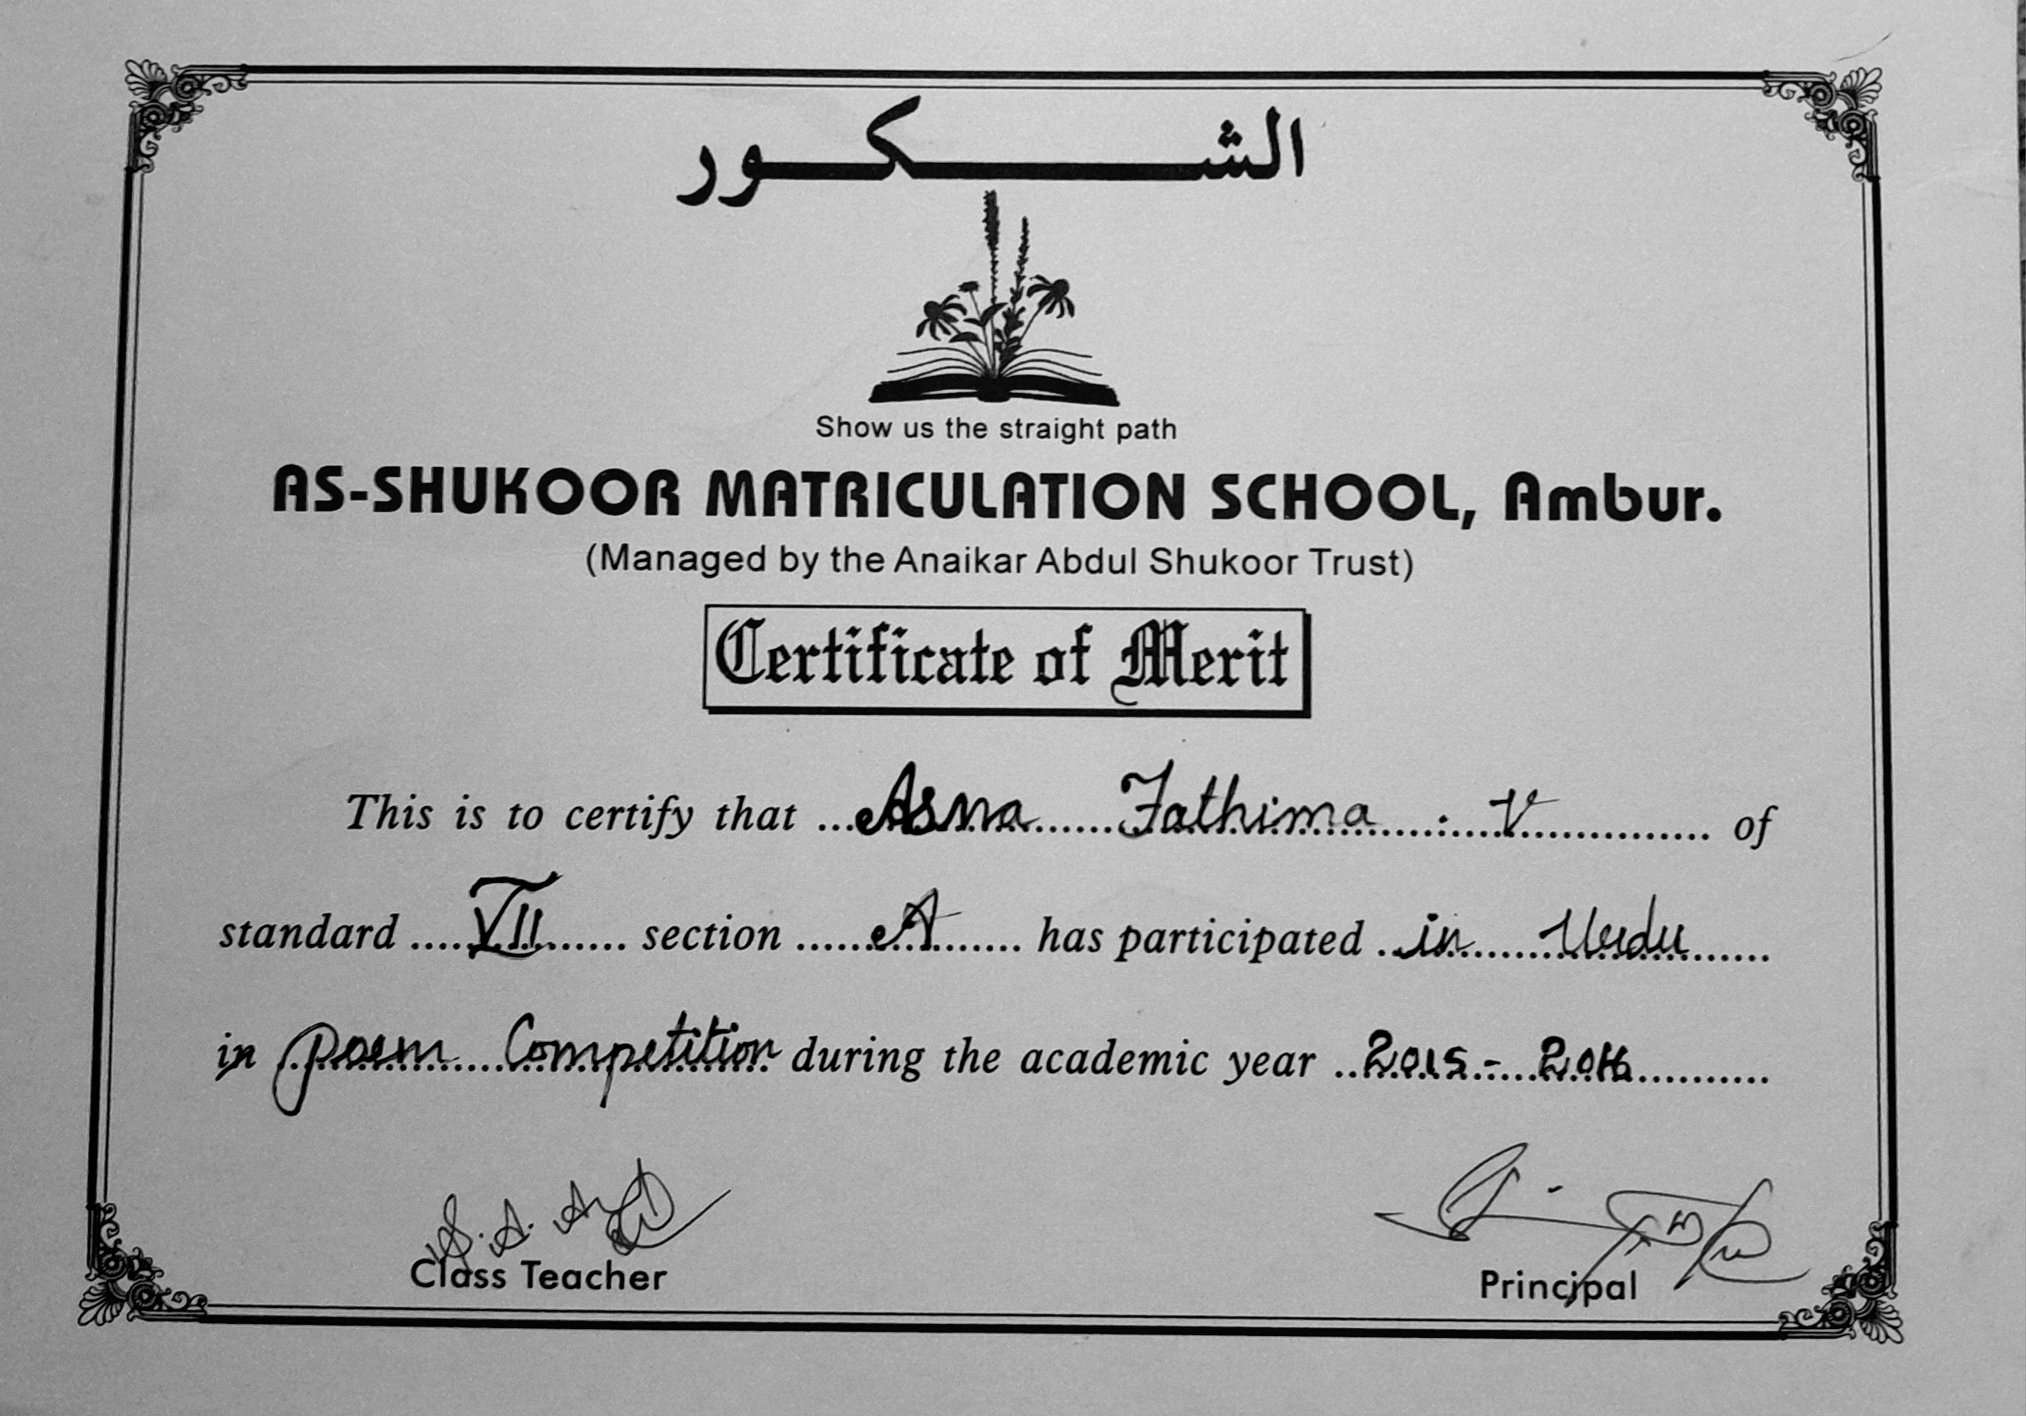 الشكور
Show us the straight path
AS-SHUKOOR MATRICULATION SCHOOL, Ambur.
(Managed by the Anaikar Abdul Shukoor Trust)
Certificate of Merit
This is to certify that Asma Fathima . V of
standard VII section A has participated in Urdu
in Poem Competition during the academic year 2015 - 2016
Class Teacher Principal